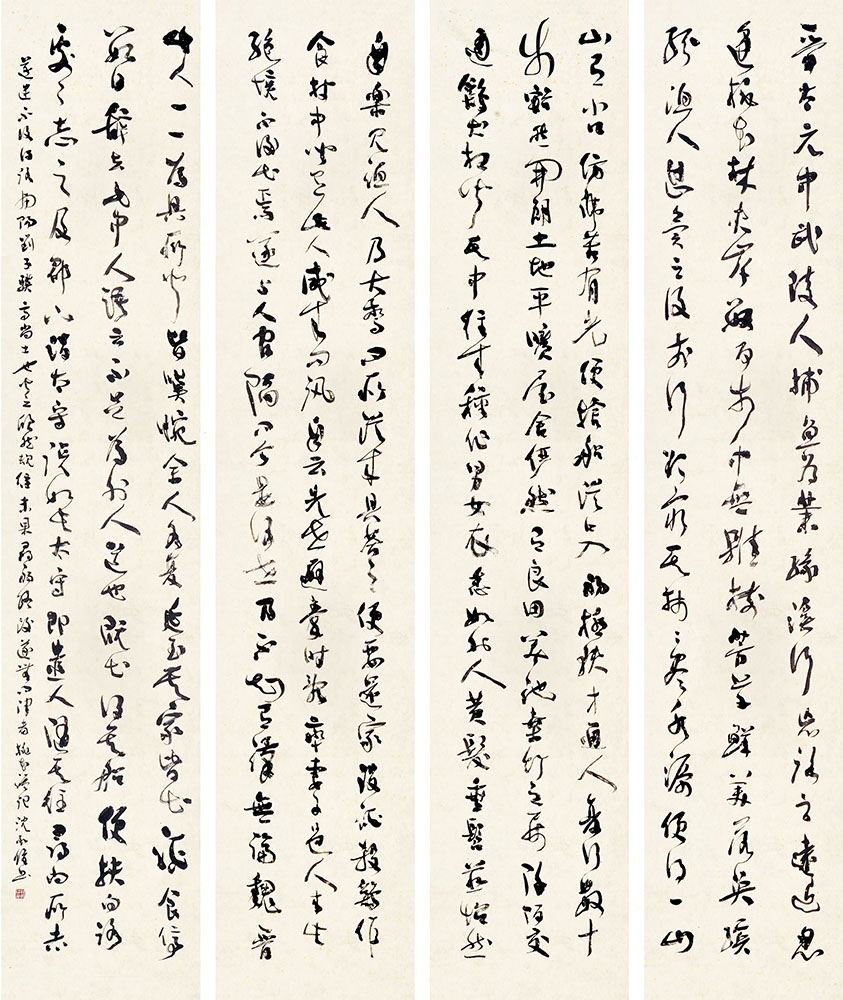 晉太元中武陵人捕魚為業緣溪行忘路之遠近忽
逢桃花林夾岸數百步中無雜樹芳草鮮美落英繽
紛漁人甚異之復前行欲窮其林林盡水源便得一山
山有小口仿佛若有光便捨船從口入初極狹才通人復行數十
步豁然開朗土地平曠屋舍儼然有良田美池桑竹之屬阡陌交
通鷄犬相聞其中往來種作男女衣悉如外人黃髮垂髫並怡然
自樂見漁人乃大驚問所從來具答之便要還家設酒殺鷄作
食村中聞有此人咸來問訊自云先世避秦時亂率妻子邑人來此
絕境不復出焉遂與人間隔問今是何世乃不知有漢無論魏晉
此人一一為具所聞皆嘆惋余人各復延至其家皆出酒食停
數日辭去此中人語云不足為外人道也既出得其船便扶向路
處處志之及郡下詣太守說如此太守即遣人隨其往尋向所志
遂迷不復得路南陽劉子驥高尚士也聞之欣然規往未果尋病終後遂無問津者桃花源記沈